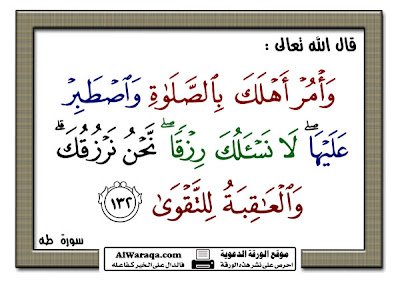 قال الله تعالى :
وَأْمُرْ أَهْلَكَ بِالصَّلَوٰةِ وَٱصْطَبِرْ
عَلَيْهَا ۖ لَا نَسْـَٔلُكَ رِزْقًا ۖ نَّحْنُ نَرْزُقُكَ ۗ
وَٱلْعَـٰقِبَةُ لِلتَّقْوَىٰ ١٣٢
سورة طه
موقع الورقة الدعوية AlWaraqa.com
احرص على نشر هذه الورقة فالدال على الخير كفاعله